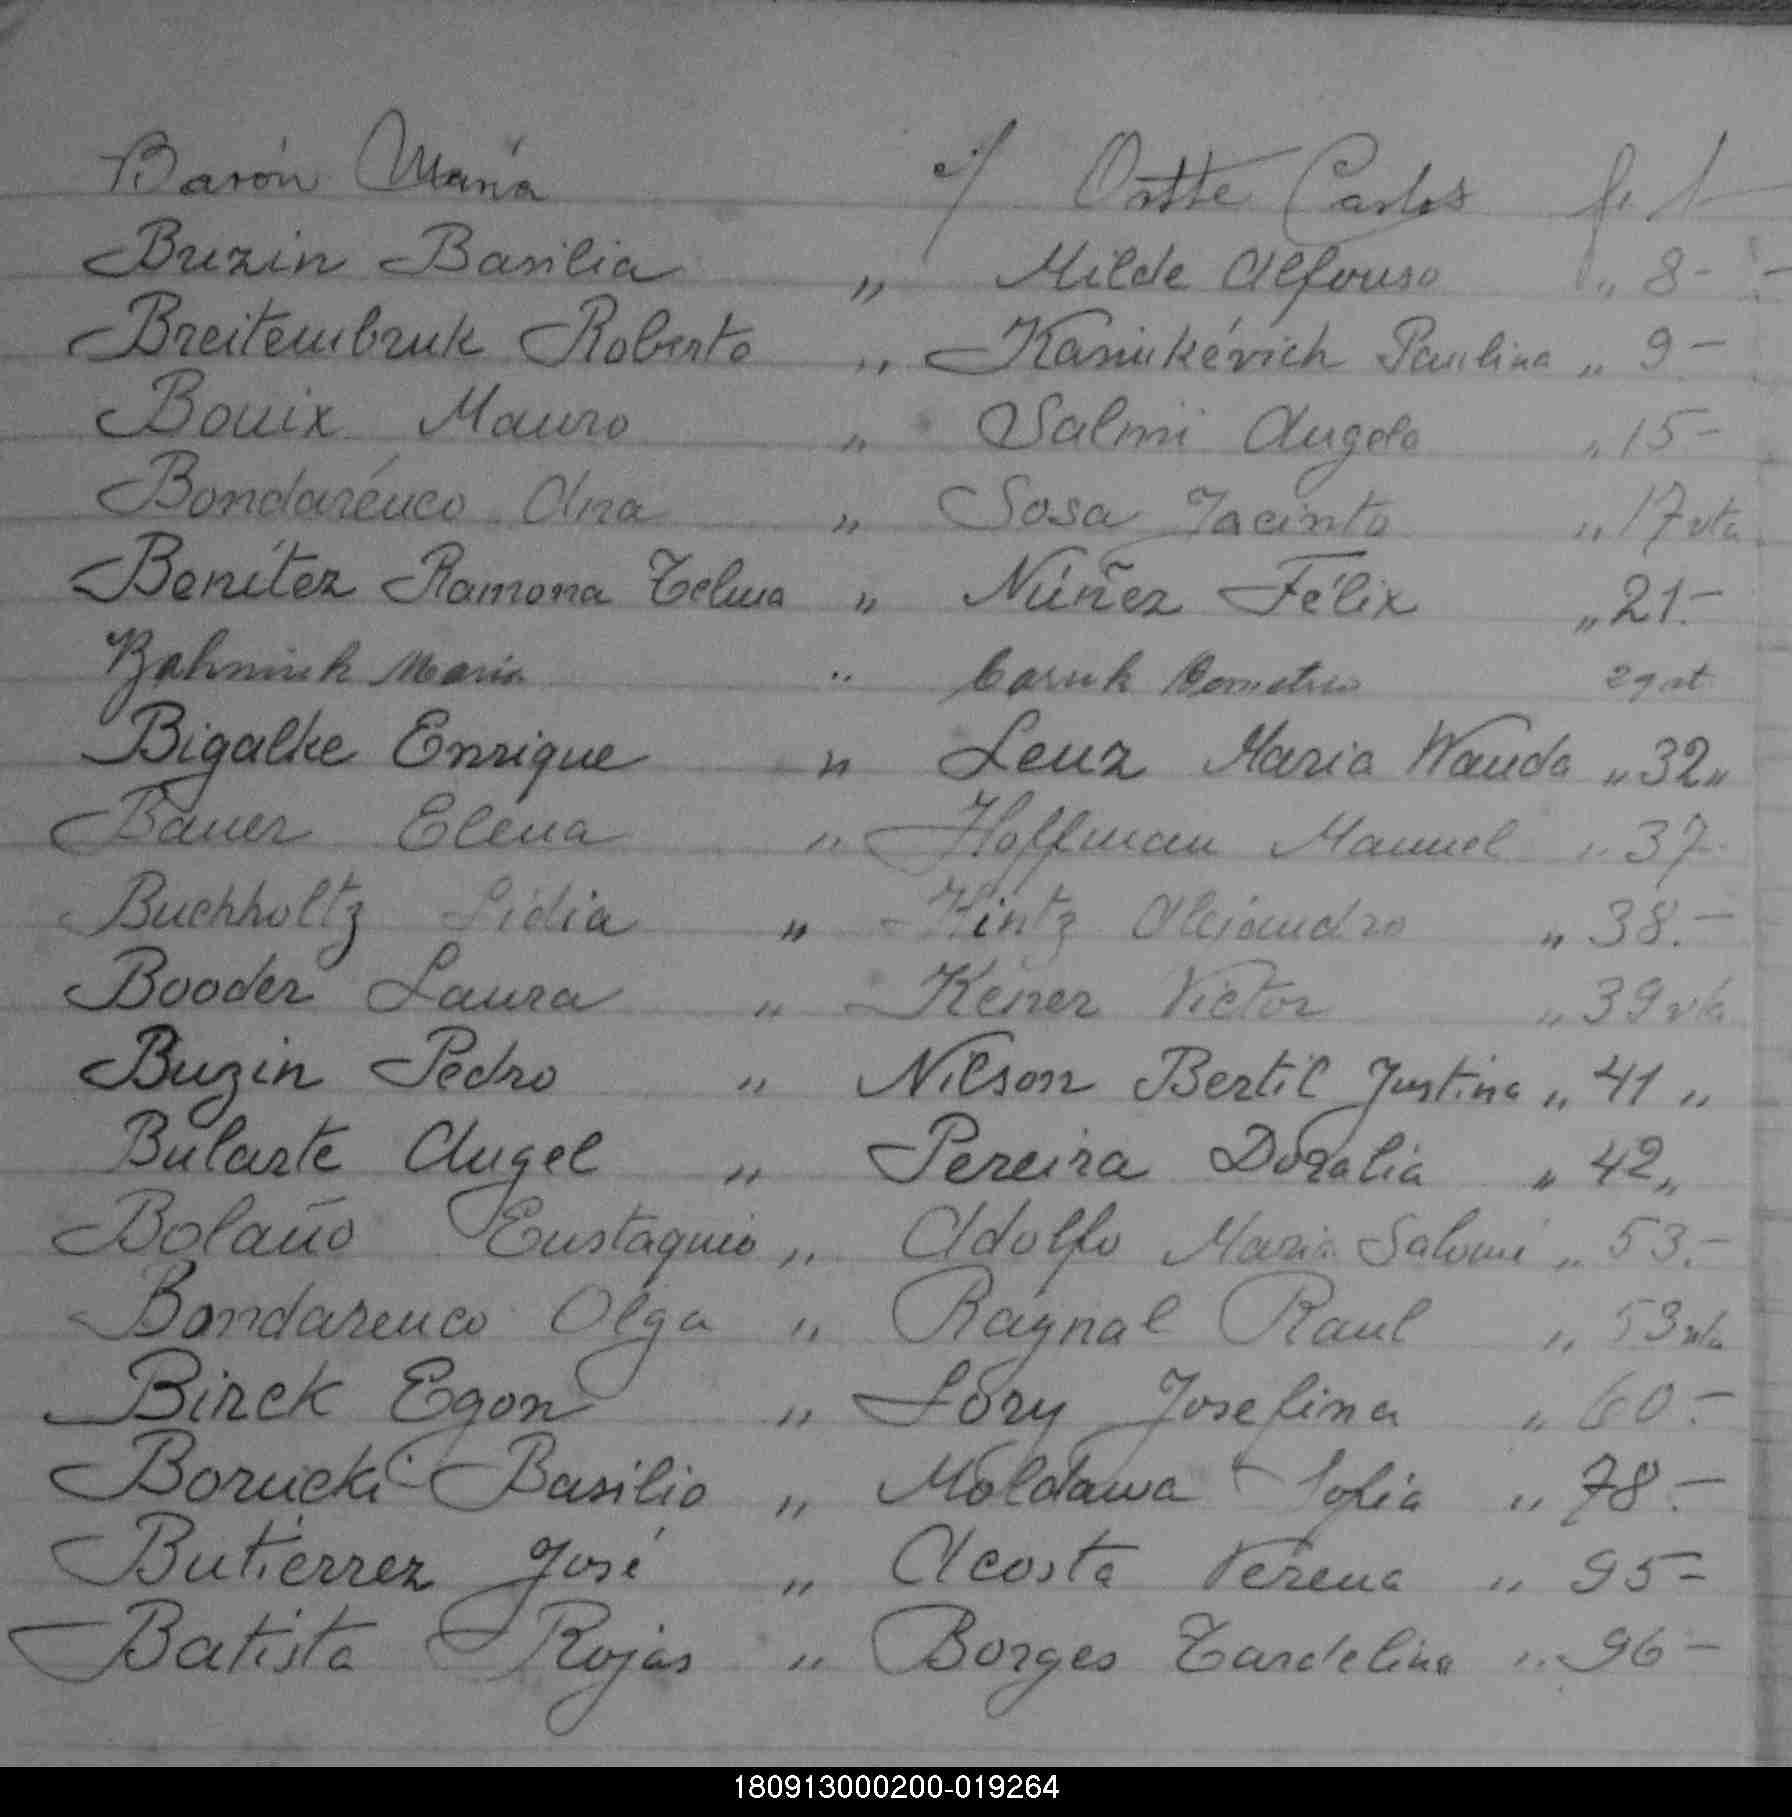 Barón María c/ Ortte Carlos fo. 1-
Buzin Basilia „ Milde Alfonso „ 8-
Breitembruk Roberto „ Kaniukévich Paulina „ 9-
Bouix Mauro „ Salmi Angela „ 15-
Bondarénco Ana „ Sosa Jacinto „ 17 vta
Benítez Ramona Telma „ Núñez Félix „ 21.-
María „ 29 vt
Bigalke Enrique „ Lenz Maria Wanda „ 32 „
Bauer Elena „ Hoffman Manuel „ 37-
Buchholtz Lidia „ Hintz Alejandro „ 38.-
Booder Laura „ Kener Victor „ 39 vta
Buzin Pedro „ Nilson Bertil Justina „ 41 „
Bularte Angel „ Pereira Doralia „ 42 „
Bolaño Eustaquio „ Adolfo Maria Salomé „ 53.-
Bondarenco Olga „ Ragnal Raul „ 53 vta
Birck Egon „ Lory Josefina „ 60.-
Borucki Basilio „ Moldawa Sofia „ 78.-
Butierrez José „ Acosta Verena „ 95-
Batista Rojas „ Borges Tardelina „ 96-
180913000200-019264